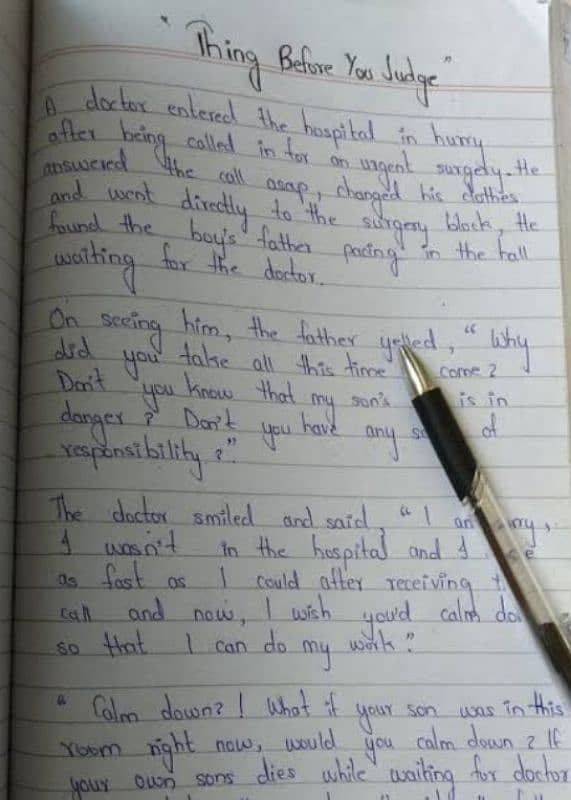 "Thing Before You Judge"
A doctor entered the hospital in hurry
after being called in for an urgent surgery. He
answered the call asap, changed his clothes
and went directly to the surgery block, He
found the boy's father pacing in the hall
waiting for the doctor.
On seeing him, the father yelled, "Why
did you take all this time come?
Don't you know that my son's is in
danger? Don't you have any of
responsibility?"
The doctor smiled and said, "I
I wasn't in the hospital and I
as fast as I could after receiving
call and now, I wish you'd calm
so that I can do my work."
"Calm down?! What if your son was in this
room right now, would you calm down? If
your own sons dies while waiting for doctor